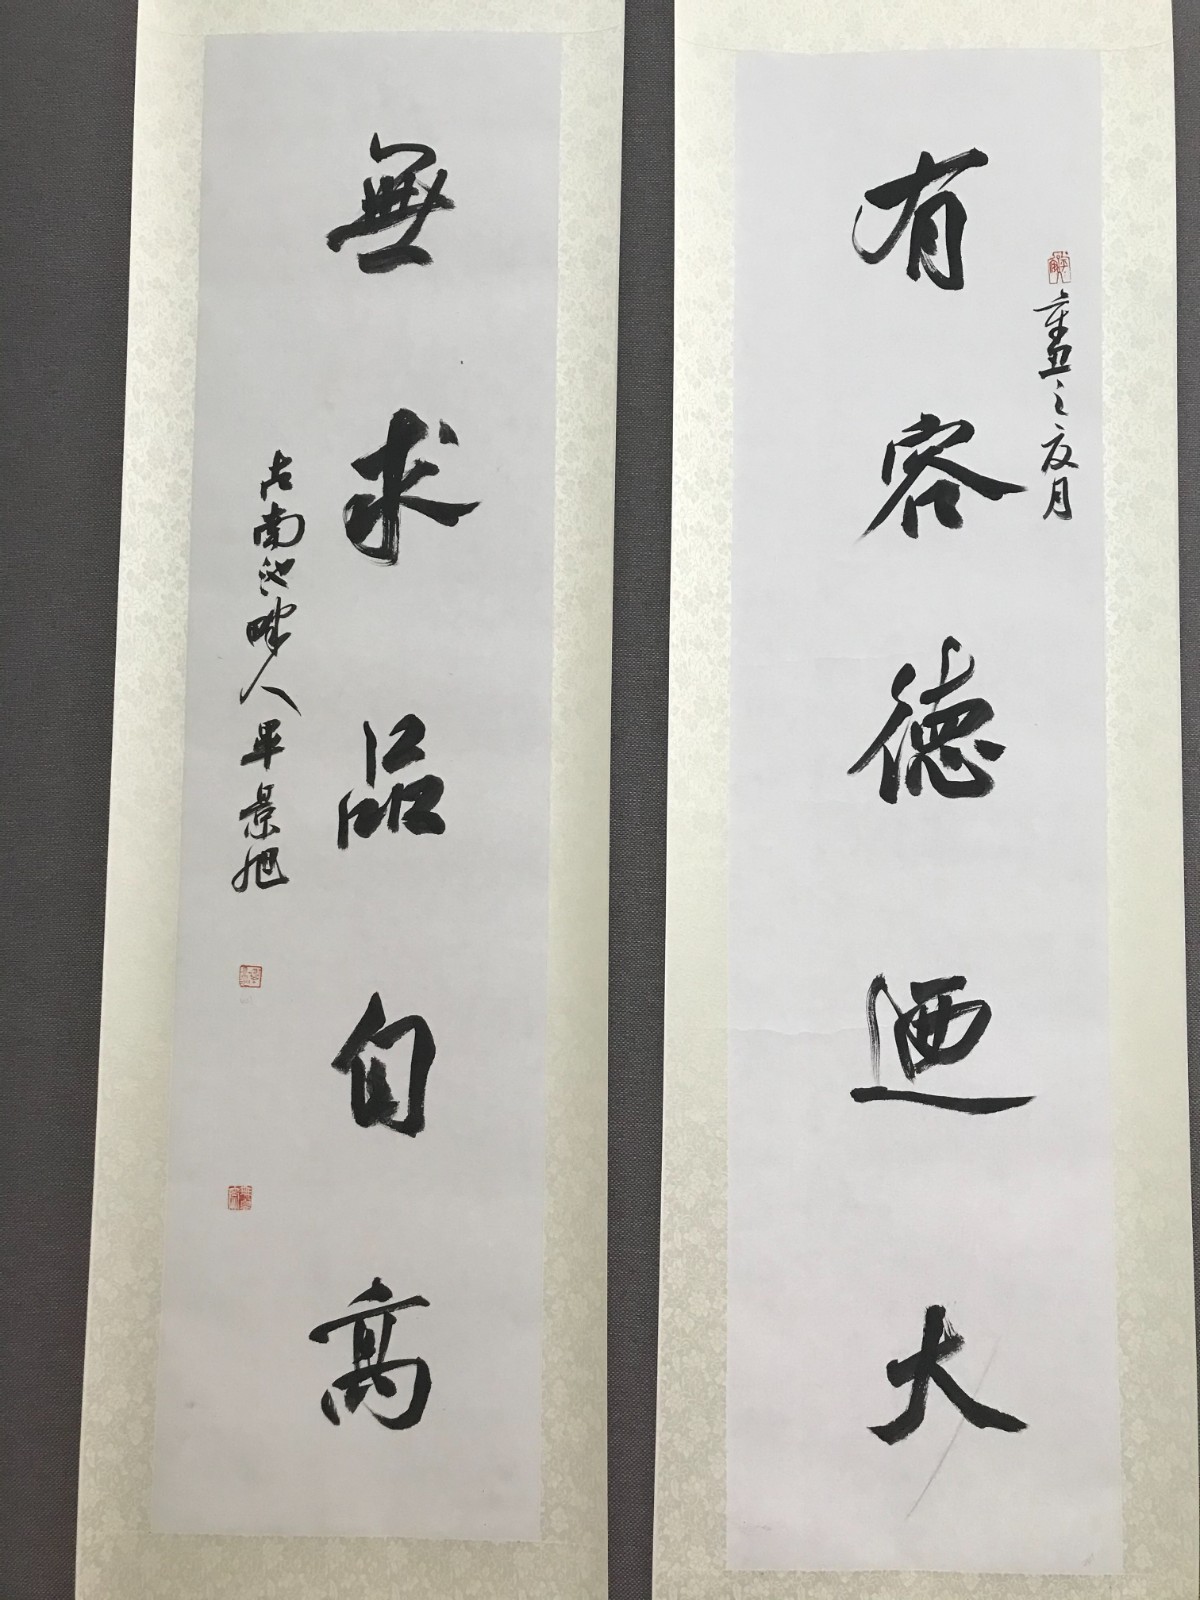 之夏月
有容德迺大
無求品自高
古南池畔人畢景旭